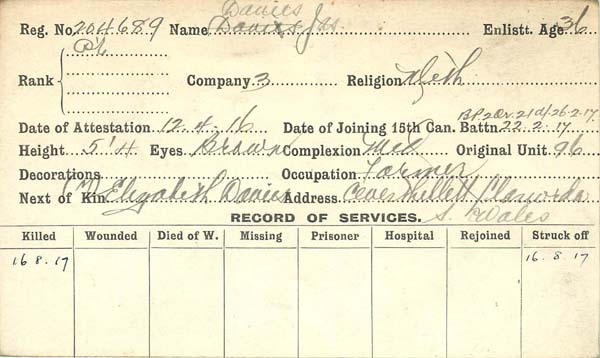 Davies
Reg. No. 204689 Name Davies, Jas. Enlistt. Age 36
Pt
Rank Company 3 Religion Meth
B.P.2 Or. 21 d/26-2-17
Date of Attestation 12.4.16 Date of Joining 15th Can. Battn. 22.2.17
Height 5'4 Eyes Brown Complexion Med Original Unit 96
Decorations Occupation Farmer
Next of Kin (M) Elizabeth Davies Address
RECORD OF SERVICES. S. Wales
Killed Wounded Died of W. Missing Prisoner Hospital Rejoined Struck off
16.8.17 16.8.17